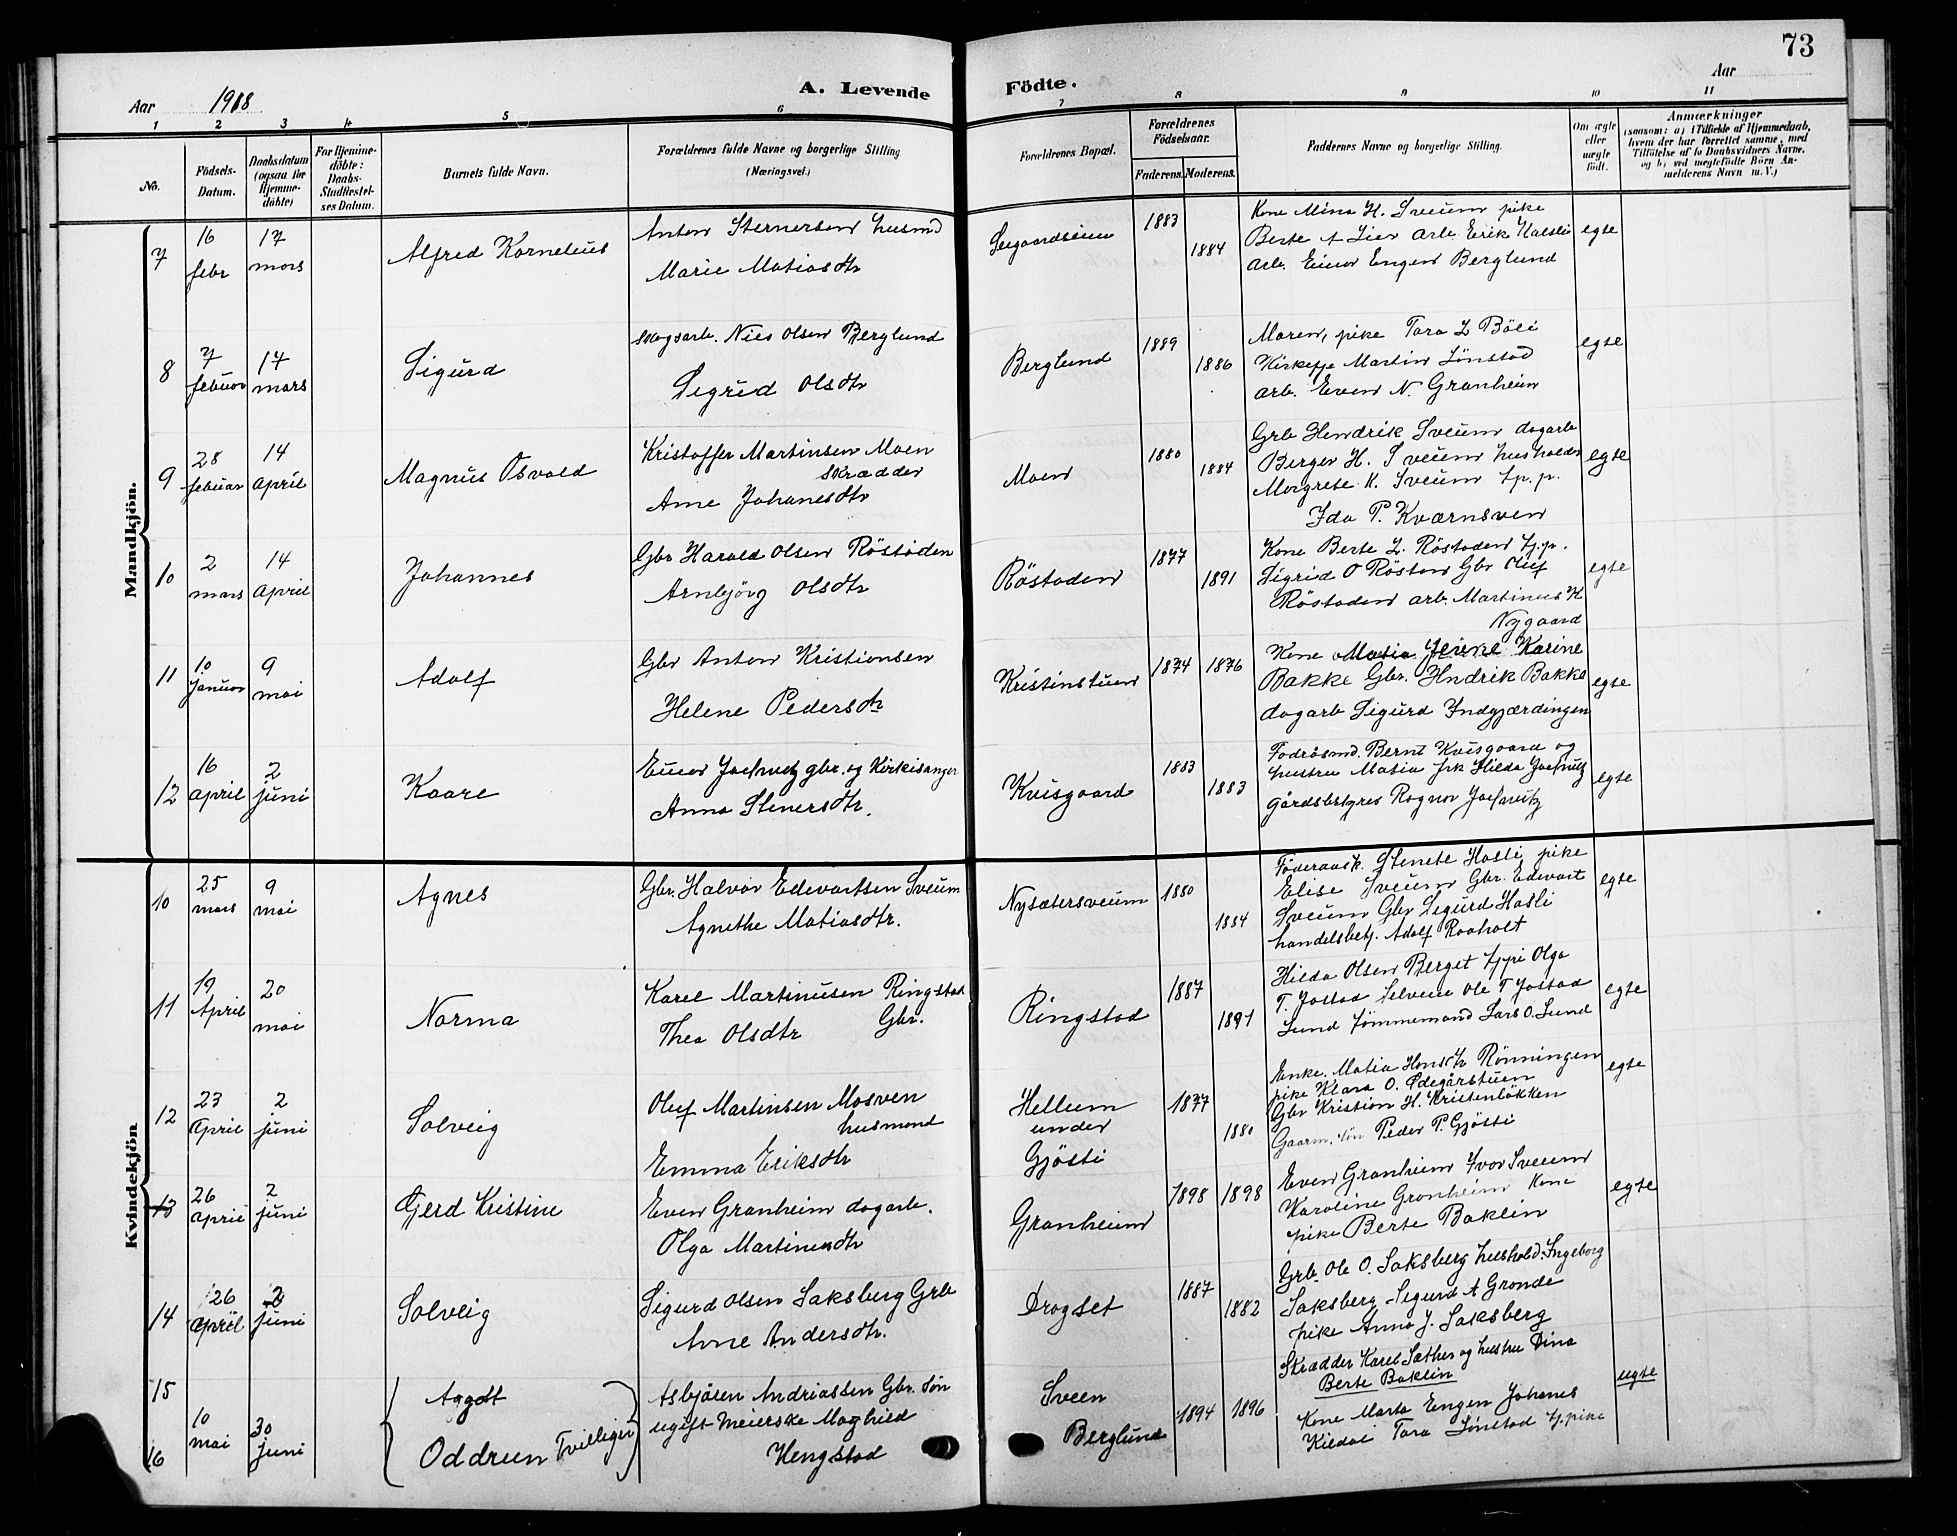 73
Aar 1918
A. Levende Födte.
Aar
1 2 3 4 5 6 7 8 9 10 11
No.
Födsels-Datum.
Daabsdatum (ogsaa for Hjemmedöbte)
For Hjemmedöbte: Daabs-Stadfæstelses Datum.
Barnets fulde Navn.
Forældrenes fulde Navne og borgerlige Stilling (Næringsvei.)
Forældrenes Bopæl.
Forældrenes Födselsaar.
Faderens. Moderens.
Faddernes Navne og borgerlige Stilling.
Om ægte eller uægte födt.
Anmærkninger
(saasom: a) i Tilfælde af Hjemmedaab, hvem der har forrettet samme, med Tilföielse af to Daabsvidners Navne. og b) ved uægtefödte Börn Anmelderens Navn m. V.)
Mandkjön.
7 16 febr 17 mars Alfred Kornelius
Anton Stenersen husmd
Marie Matiasdtr
1883 1884
Kone Mina H. Sveum pike
Berte A Lien arb. Erik
arb. Einar Engen Berglund
egte
8 7 februar 17 mars Sigurd
skogsarb. Nils Olsen Berglund
Sigrid Olsdtr
Berglund 1889 1886
Maren, pike Tara L Böli
Kirketj Martin Lönstad
arb. Even N. Granheim
egte
9 28 februar 14 april Magnus Osvald
Kristoffer Martinsen Moen
skrædder
Ane Johanesdtr
Moen 1880 1884
Grb Hendrik Sveum dagarb
Berger H. Sveum husholder
Margrete K. Sveum tp.p.
Ida P. Kværnsven
egte
10 2 mars 14 April Johannes
Gbr Harald Olsen Röstaden
Arnbjörg Olsdtr
Röstaden 1877 1891
Kone Berte L. Röstaden tj.p.
Sigrid O Rösten Gbr Oluf
Röstaden arb. Martinus K
Nygaard
egte
11 10 Januar 9 mai Adolf
Gbr Anton Kristiansen
Helene Pedersdtr
Kristinstuen 1874 1876
Kone Karine
Bakke Gbr. Hndrik Bakke
dagarb Sigurd Indgjærdingen
egte
12 16 april 2 juni Kaare
Einar gbr. og Kirkesanger
Anna Stenersdtr.
Kvisgaard 1883 1883
Födråsmd. Bernt Kvisgaard og
hustru Matia frk Hilda
gårdsbstyres Ragnar
egte
Kvindekjön
10 25 mars 9 mai Agnes
Gbr. Halvor Edevartsen Sveum
Agnethe Matiasdtr.
Nysætersveum 1880 1884
Föderaask. Stenete Hasli pike
Elise Sveum Gbr. Edevart
Sveum Gbr Sigurd Hasli
handelsbetj. Adolf Raaholt
egte
11 19 April 20 mai Norma
Karel Martinusen Ringstad
Gbr.
Thea Olsdtr
Ringstad 1887 1891
Hilda Olsen Berget tjpi Olga
T. Jostad Selveie Ole T Jostad
Lund Tömmemand Lars O. Lund
egte
12 23 April 2 juni Solveig
Oluf Martinsen Mosven
husmand
Emma Eriksdtr
Hellum under Gjösti 1877 1880
Enke. Matia Rönningen
pike Klara O. Ødegårstuen
Gbr Kristian H. Kristenlökken
Gaarm. sön Peder P. Gjösti
egte
13 26 april 2 juni Gjerd Kristine
Even Granheim dagarb.
Olga Martinusdtr
Granheim 1898 1898
Even Granheim Ivar Sveum
Karoline Granheim Kone
pike Berte Baklin
egte
14 26 April 2 juni Solveig
Sigurd Olsen Saksberg Grb
Anne Andersdtr.
Dragset 1887 1882
Grb. Ole O. Saksberg hushold. Ingeborg
Saksberg Sigurd A Grande
pike Anna J. Saksberg
15 16 10 mai 30 juni
Aagot
Oddrun Tvillinger
Asbjören Andriassen Gbr. sön
ugift meierske Maghild
Hengstad
Sveen
Berglund
1894 1896
Skrædder Karel Sæther og hustru Dina
Berte Baklin
Kone Marta Engen Johanes
Kildal Tara Lönstad tj.pike
uegte